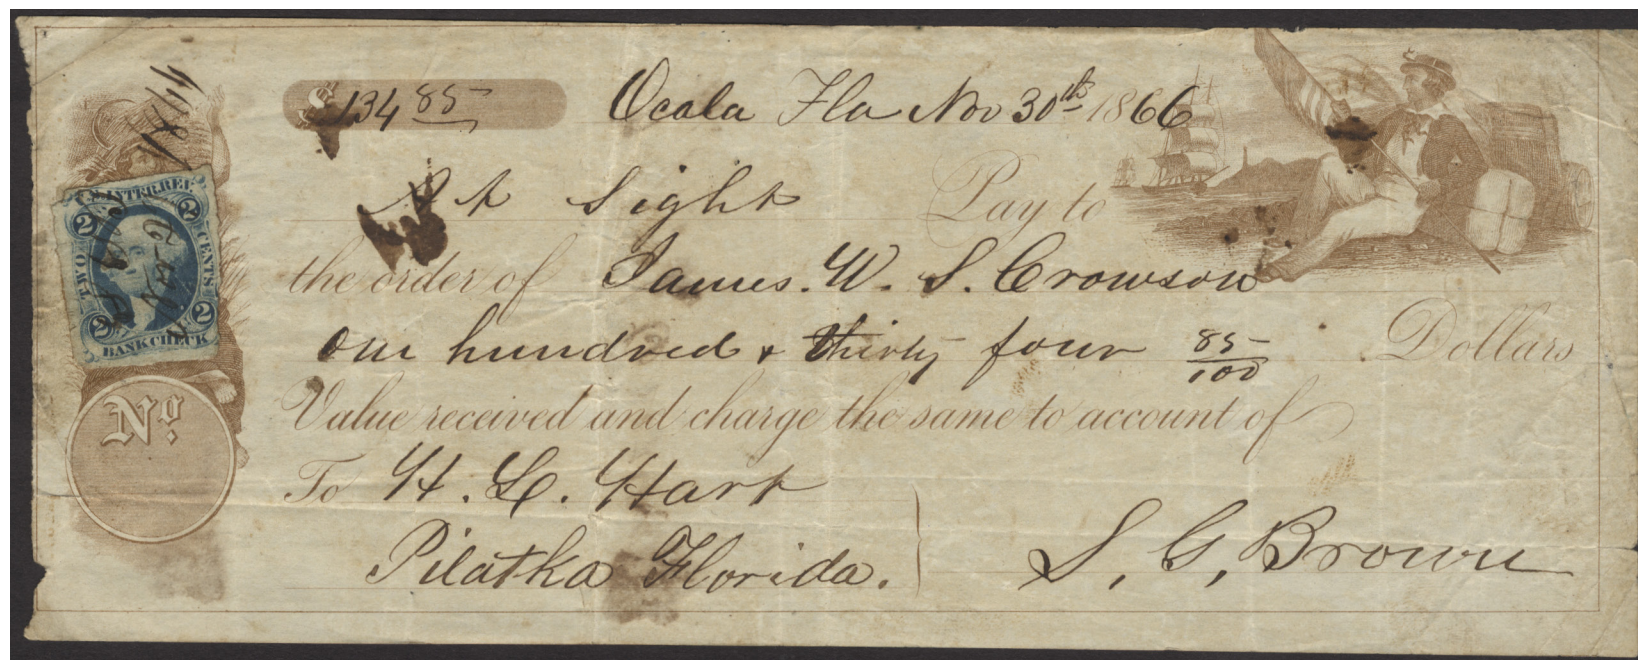 $134 85
Ocala Fla Nov 30th 1866
At Sight Pay to
the order of James. W. S. Crowson
One hundred & thirty four 85/100 Dollars
Value received and charge the same to account of
To H. L. Hart
Pilatka Florida.
S. G. Brown
INTER. REV.
2
TWO CENTS
2 2
BANK CHECK
Nov
No.